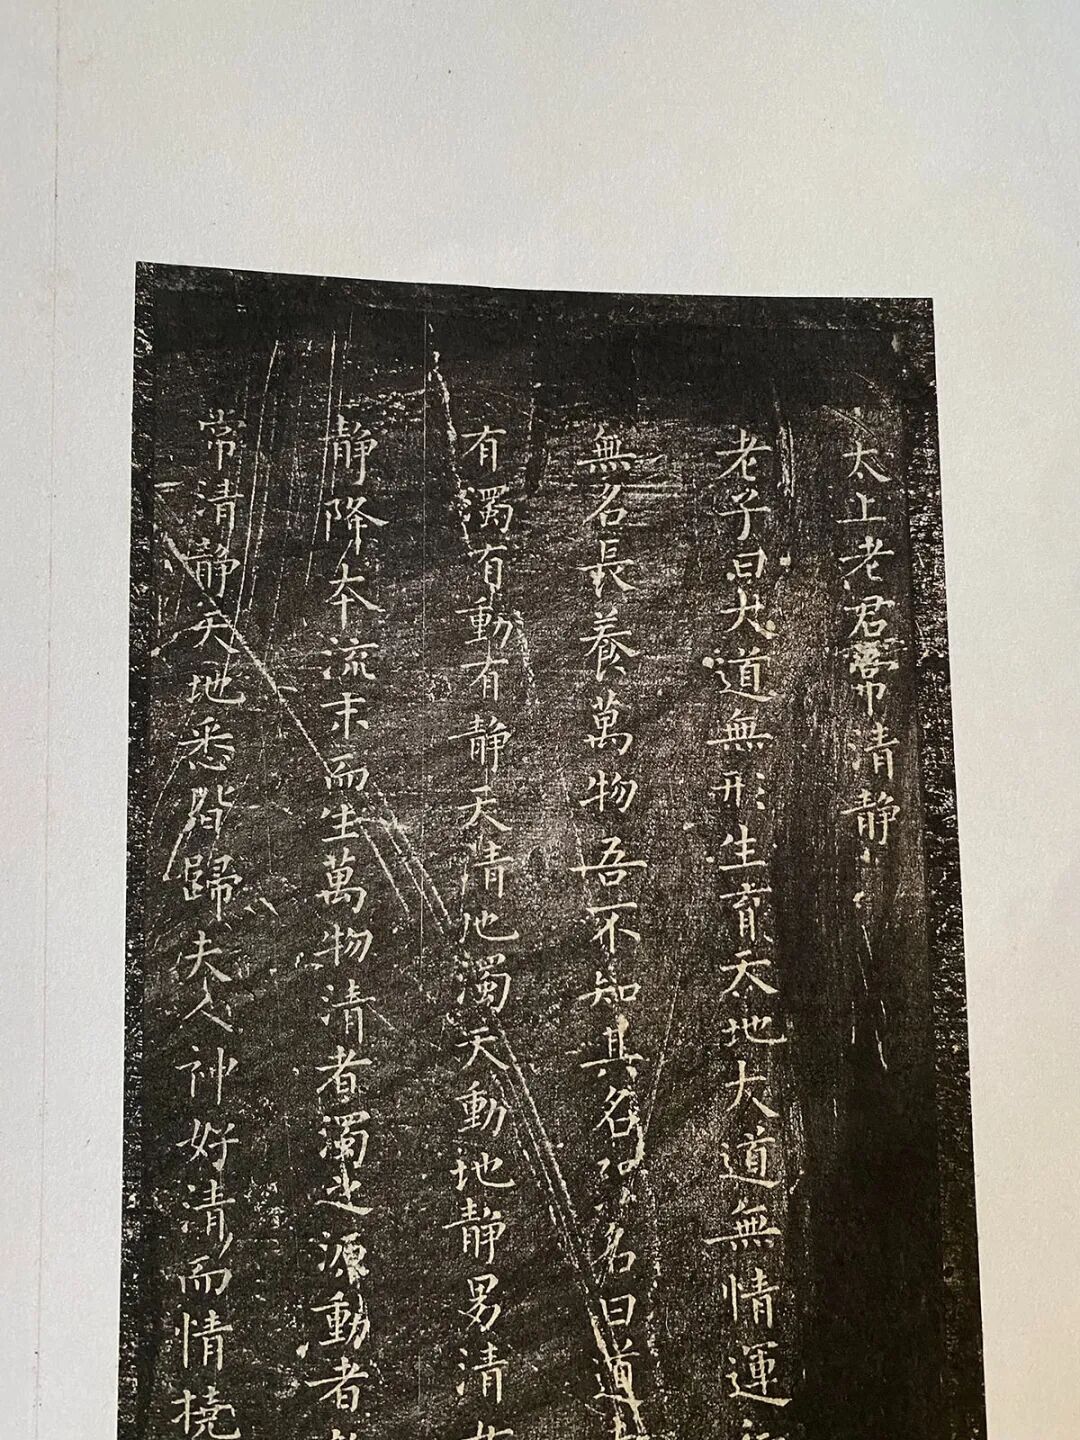 太上老君常清静
老子曰大道無形生育天地大道無情運
無名長養萬物吾不知其名强名曰道
有濁有動有静天清地濁天動地静男清
静降本流末而生萬物清者濁之源動者
常清静天地悉皆歸夫人神好清而情撓